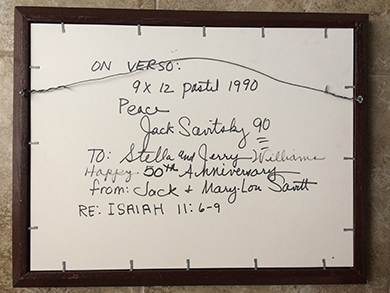 ON VERSO:
9 X 12 pastel 1990
Peace
Jack Savitsky 90
TO: Stella and Jerry Williams
Happy 50th Anniversary
from: Jack + Mary-Lou Savitt
RE: ISAIAH 11:6-9